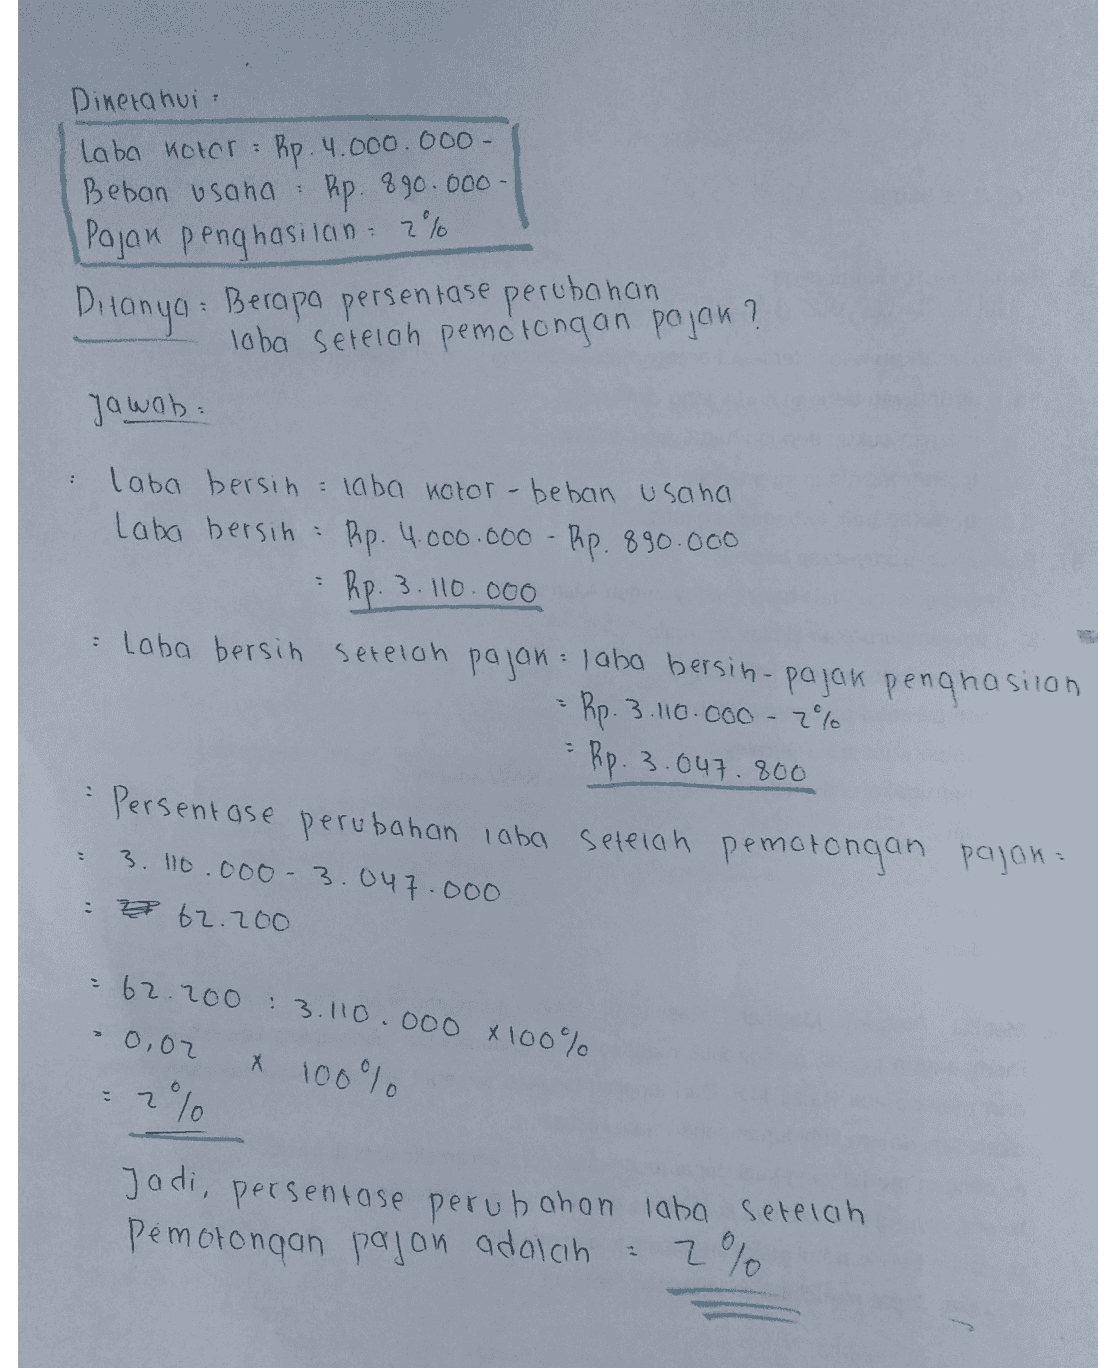 Diketahui :
Laba kotor : Rp. 4.000.000-
Beban usaha : Rp. 890.000-
Pajak penghasilan : 2%
Ditanya : Berapa persentase perubahan
laba setelah pemotongan pajak?
Jawab :
: Laba bersih : laba kotor - beban usaha
Laba bersih : Rp. 4.000.000 - Rp. 890.000
: Rp. 3.110.000
: Laba bersih setelah pajak : laba bersih - pajak penghasilan
= Rp. 3.110.000 - 2%
= Rp. 3.047.800
: Persentase perubahan laba setelah pemotongan pajak :
: 3.110.000 - 3.047.000
: 62.200
= 62.200 : 3.110.000 x 100%
= 0,02 x 100%
= 2%
Jadi, persentase perubahan laba setelah
Pemotongan pajak adalah : 2%